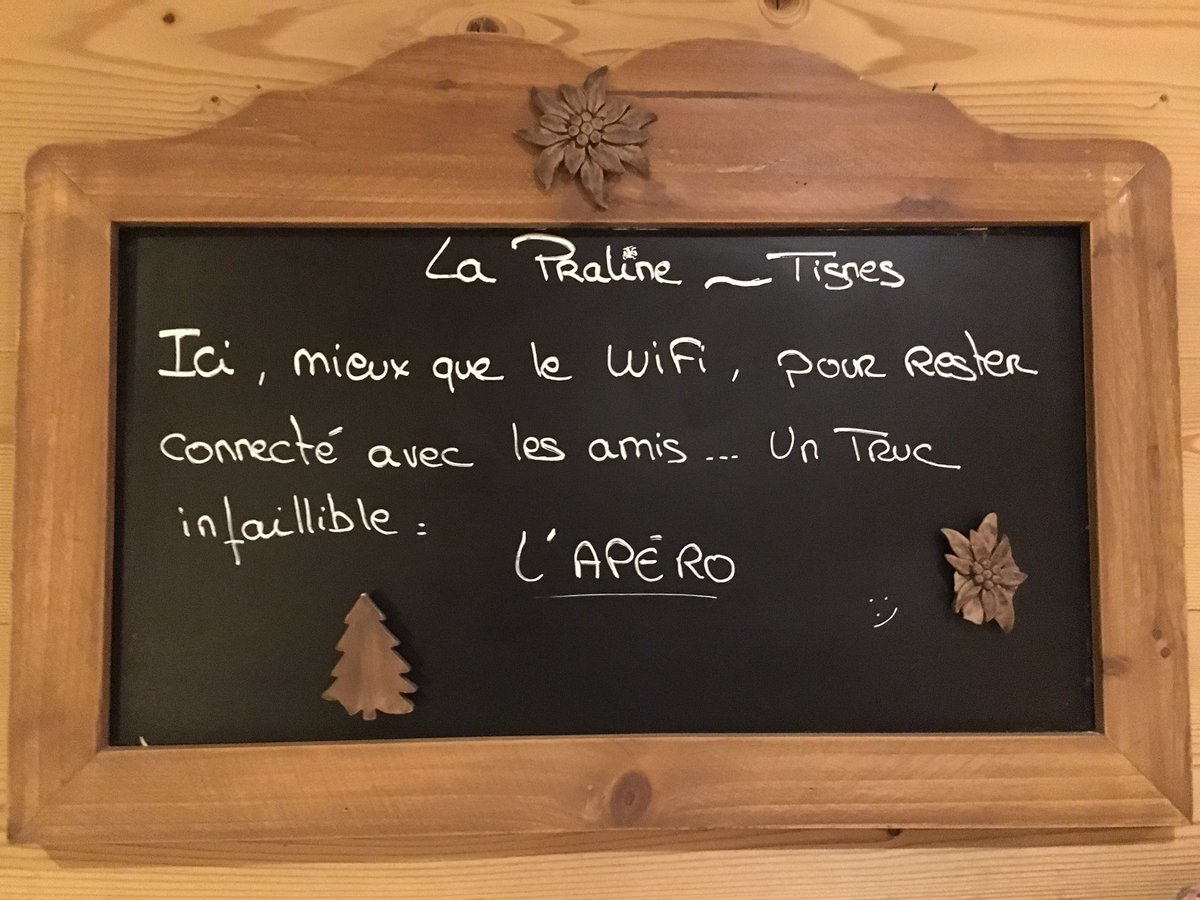 La Praline ~ Tignes
Ici, mieux que le WiFi, pour rester
connecté avec les amis... Un Truc
infaillible :
L'APÉRO
:)